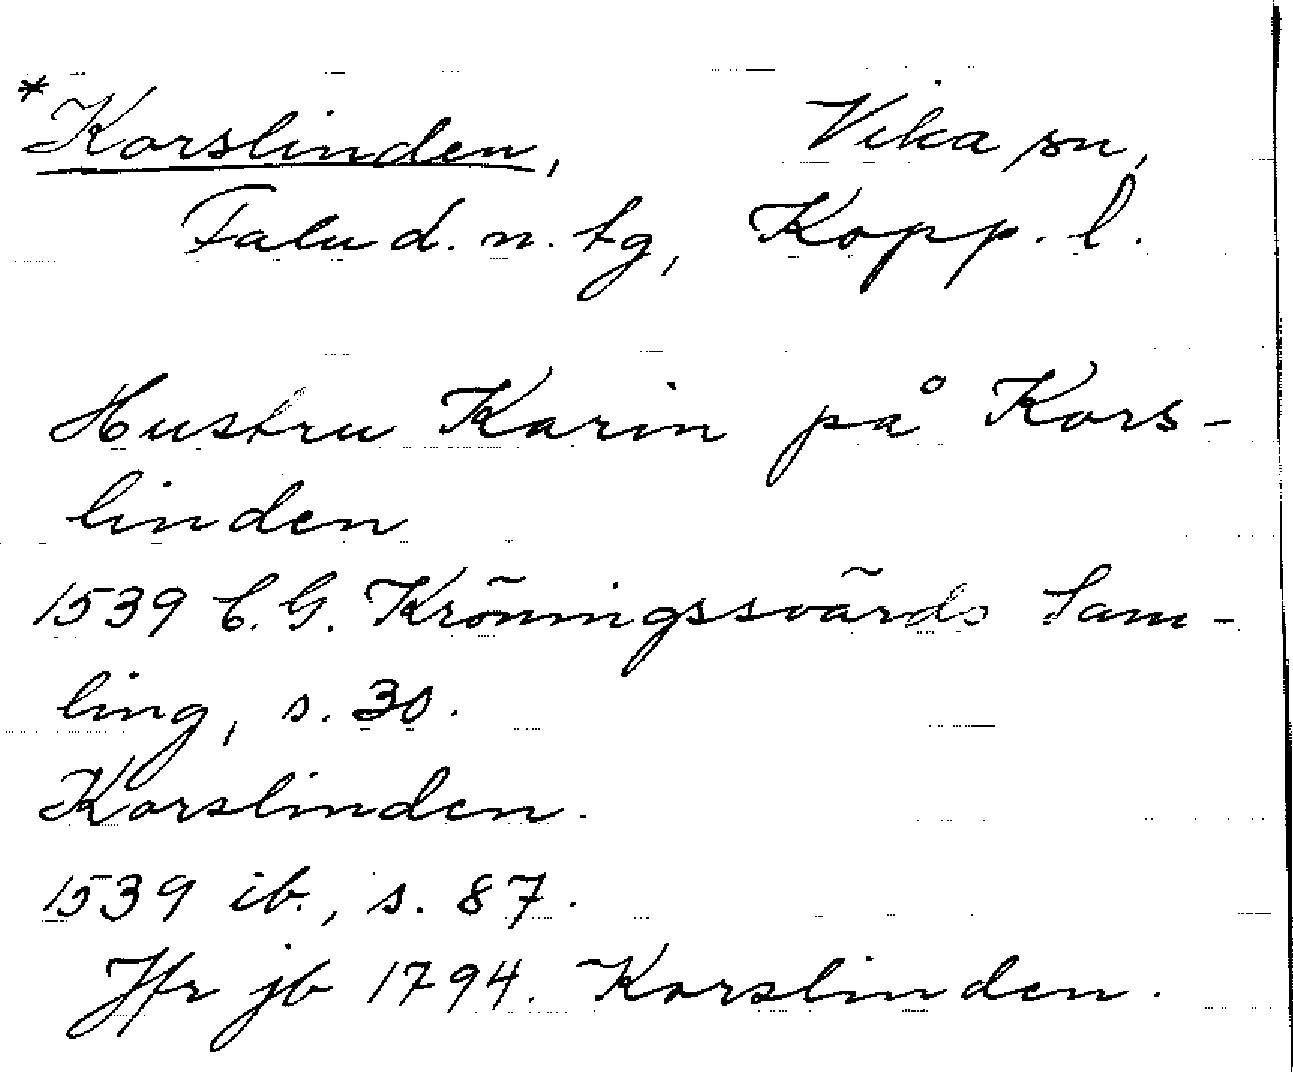 *Korslinden, Vika sn,
Falu d. n. tg, Kopp. l.
Hustru Karin på Kors-
linden
1539 C. G. Kröningssvärds Sam-
ling, s. 30.
Korslinden.
1539 ib., s. 87.
Jfr jb 1794. Korslinden.